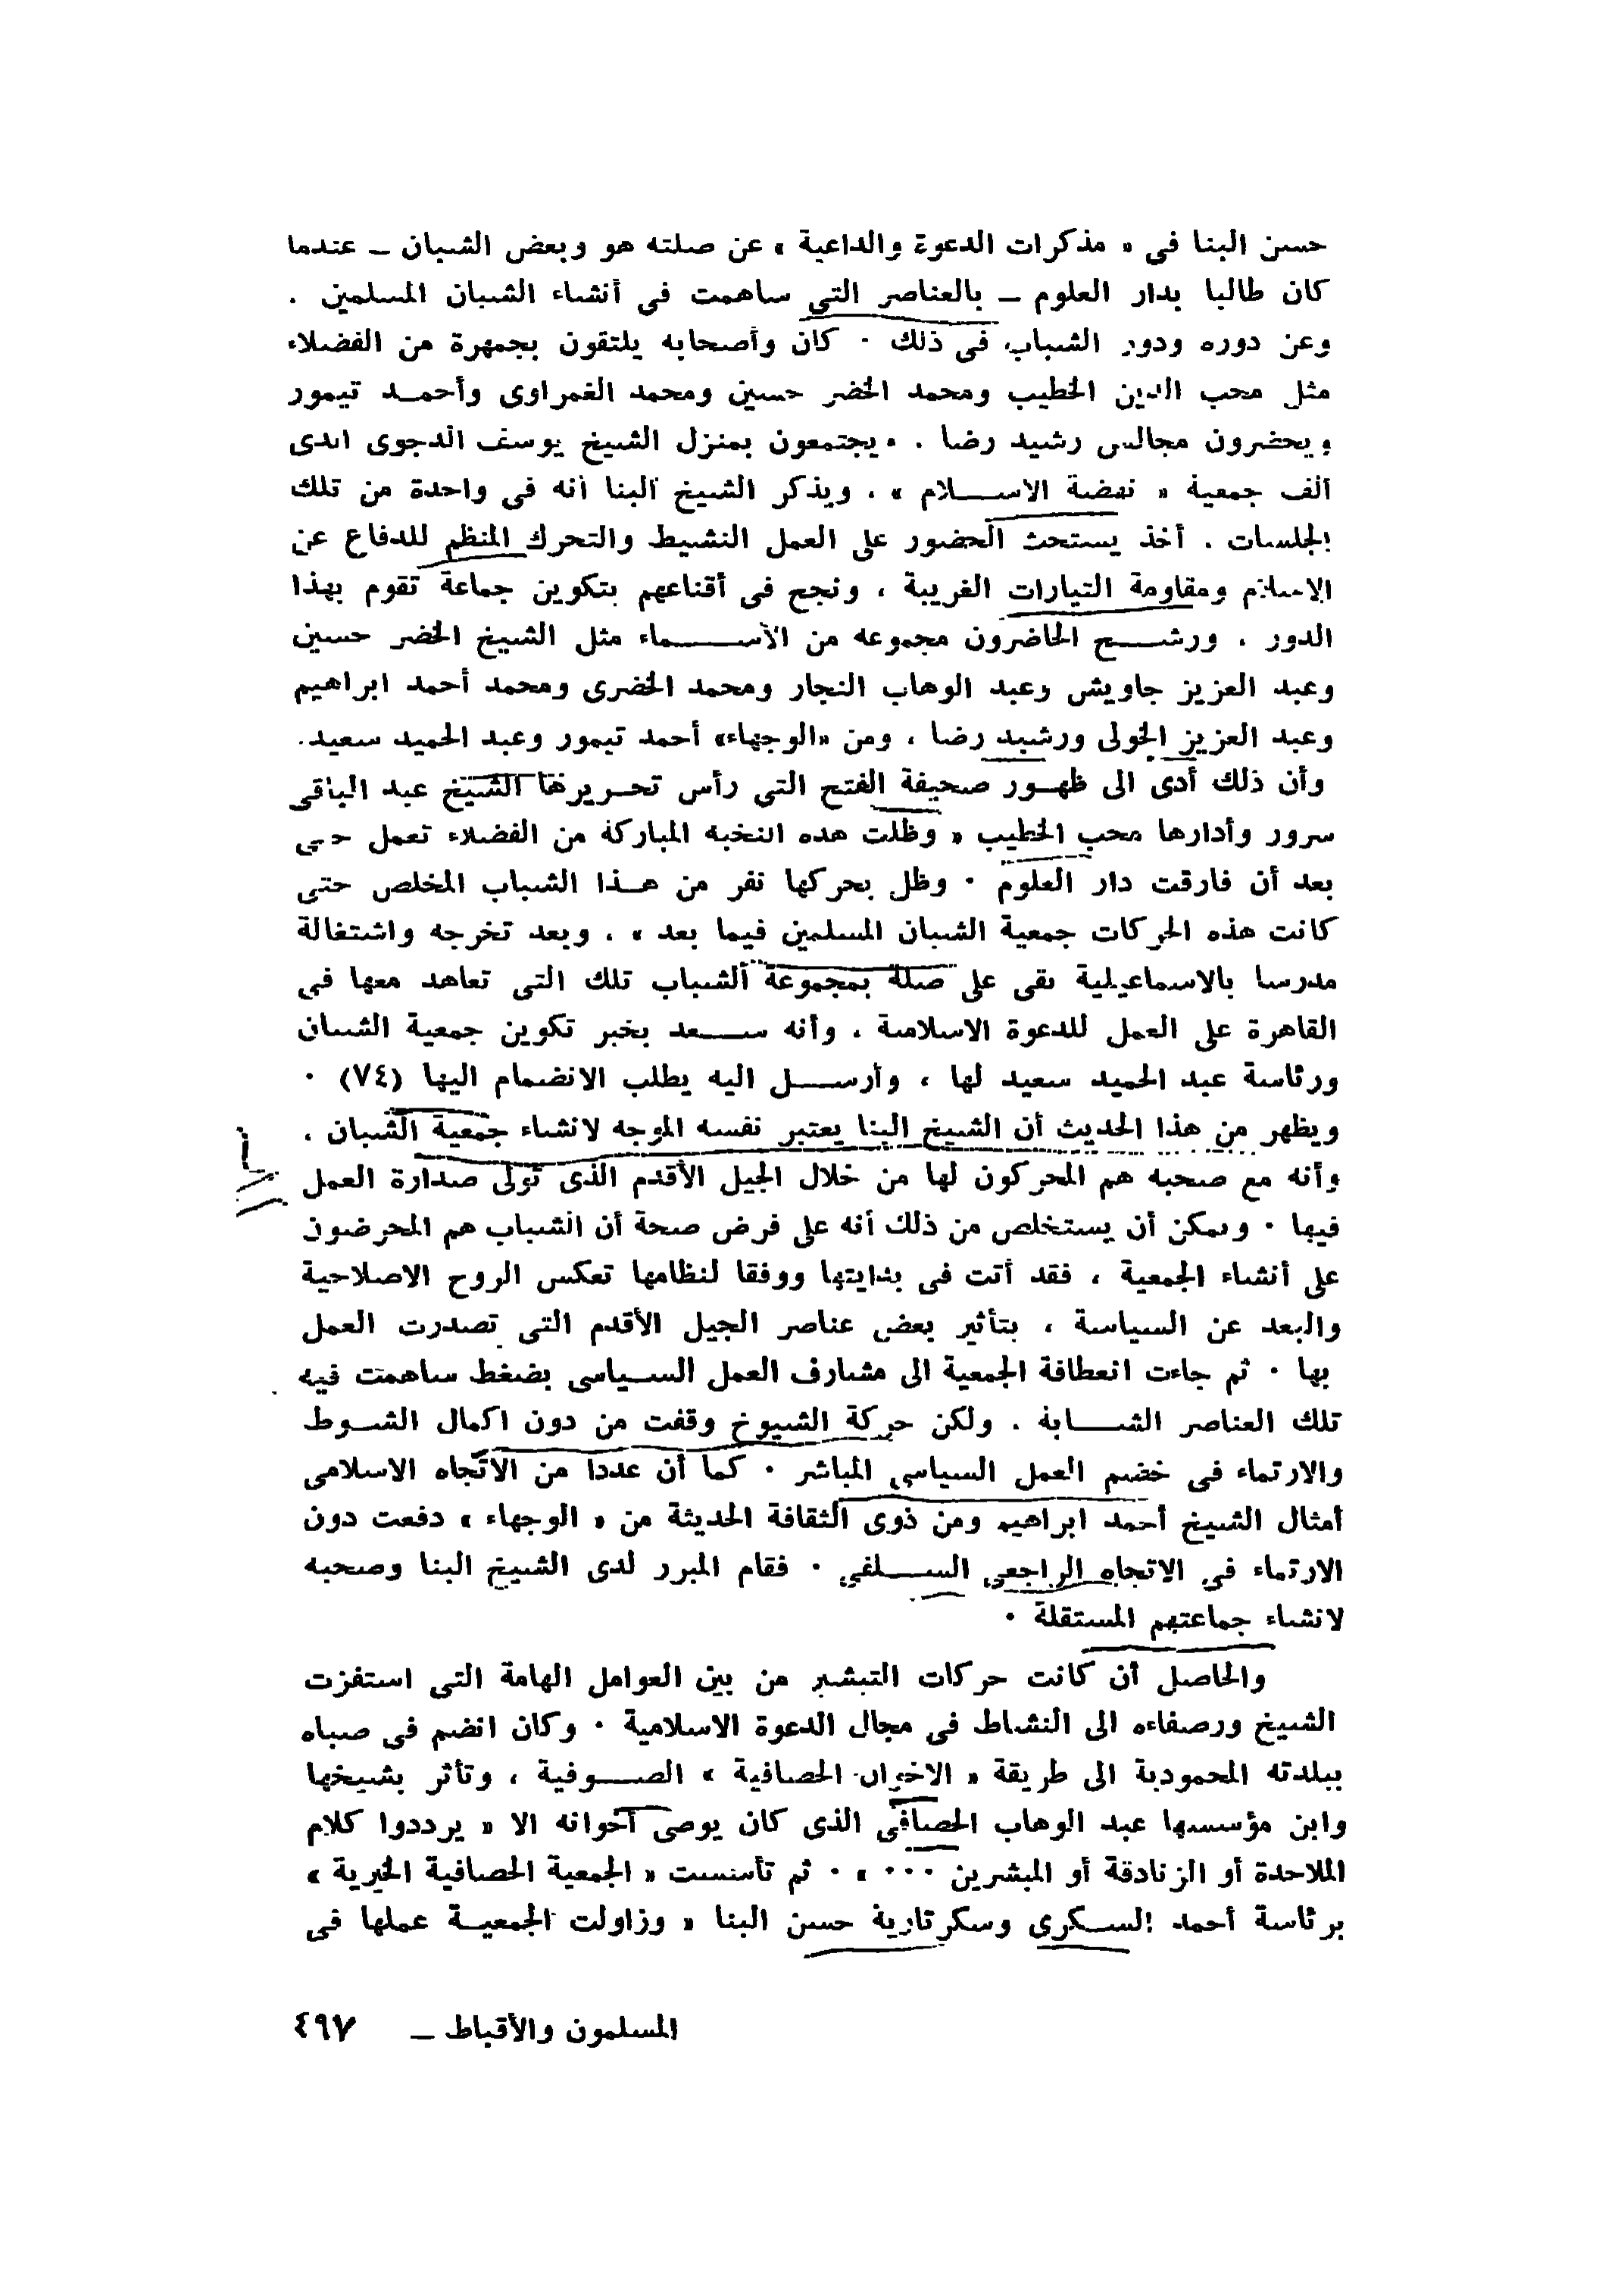 حسن البنا فى « مذكرات الدعوة والداعية » عن صلته هو وبعض الشبان ــ عندما
كان طالبا بدار العلوم ــ بالعناصر التى ساهمت فى أنشاء الشبان المسلمين .
وعن دوره ودور الشباب فى ذلك . كان وأصحابه يلتقون بجمهرة من الفضلاء
مثل محب الدين الخطيب ومحمد الخضر حسين ومحمد الغمراوى وأحمد تيمور
ويحضرون مجالس رشيد رضا . ويجتمعون بمنزل الشيخ يوسف الدجوى الذى
ألف جمعية « نهضة الاسلام » ، ويذكر الشيخ البنا أنه فى واحدة من تلك
الجلسات . أخذ يستحث الحضور على العمل النشيط والتحرك المنظم للدفاع عن
الاسلام ومقاومة التيارات الغريبة ، ونجح فى أقناعهم بتكوين جماعة تقوم بهذا
الدور ، ورشح الحاضرون مجموعه من الأسماء مثل الشيخ الخضر حسين
وعبد العزيز جاويش وعبد الوهاب النجار ومحمد الخضرى ومحمد أحمد ابراهيم
وعبد العزيز الخولى ورشيد رضا ، ومن «الوجهاء» أحمد تيمور وعبد الحميد سعيد.
وأن ذلك أدى الى ظهور صحيفة الفتح التى رأس تحريرها الشيخ عبد الباقى
سرور وأدارها محب الخطيب « وظلت هده النخبه المباركة من الفضلاء تعمل حتى
بعد أن فارقت دار العلوم . وظل يحركها نفر من هذا الشباب المخلص حتى
كانت هذه الحركات جمعية الشبان المسلمين فيما بعد » . وبعد تخرجه واشتغالة
مدرسا بالاسماعيلية بقى على صلة بمجموعة الشباب تلك التى تعاهد معها فى
القاهرة على العمل للدعوة الاسلامية ، وأنه سعد بخبر تكوين جمعية الشبان
ورئاسة عبد الحميد سعيد لها ، وأرسل اليه يطلب الانضمام اليها (٧٤) .
ويظهر من هذا الحديث أن الشيخ البنا يعتبر نفسه الموجه لانشاء جمعية الشبان ،
وأنه مع صحبه هم المحركون لها من خلال الجيل الأقدم الذى تولى صدارة العمل
فيها . ويمكن أن يستخلص من ذلك أنه على فرض صحة أن الشباب هم المحرضون
على أنشاء الجمعية ، فقد أتت فى بدايتها ووفقا لنظامها تعكس الروح الاصلاحية
والبعد عن السياسة ، بتأثير بعض عناصر الجيل الأقدم التى تصدرت العمل
بها . ثم جاءت انعطافة الجمعية الى مشارف العمل السياسى بضغط ساهمت فيه
تلك العناصر الشابة . ولكن حركة الشيوخ وقفت من دون اكمال الشوط
والارتماء فى خضم العمل السياسى المباشر . كما أن عددا من الاتجاه الاسلامى
أمثال الشيخ أحمد ابراهيم ومن ذوى الثقافة الحديثة من « الوجهاء » دفعت دون
الارتماء فى الاتجاه الراجعى السلفى . فقام المبرر لدى الشيخ البنا وصحبه
لانشاء جماعتهم المستقلة .
والحاصل أن كانت حركات التبشير من بين العوامل الهامة التى استفزت
الشيخ ورصفاءه الى النشاط فى مجال الدعوة الاسلامية . وكان انضم فى صباه
ببلدته المحمودية الى طريقة « الاخوان الحصافية » الصوفية ، وتأثر بشيخها
وابن مؤسسها عبد الوهاب الحصافى الذى كان يوصى أخوانه الا « يرددوا كلام
الملاحدة أو الزنادقة أو المبشرين ... » . ثم تأسست « الجمعية الحصافية الخيرية »
برئاسة أحمد السكرى وسكرتارية حسن البنا « وزاولت الجمعية عملها فى
المسلمون والأقباط ــ ٤٩٧